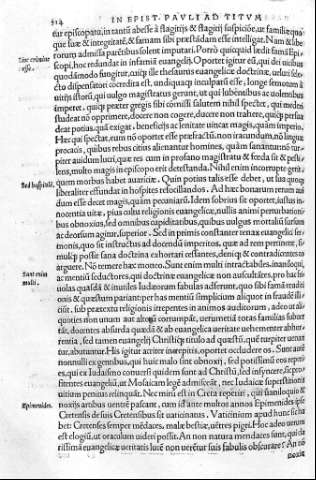 514 IN EPIST. PAVLI AD TITVM
tur episcopum, in tantū abesse à flagitijs & flagitij suspiciõe, ut familiæ quo-
que suæ & integritatē, & famam sibi præstādam esse intelligat. Nam & libe-
rorum admissa parētibus solent imputari. Porrò quicquid lædit famā Epi-
Sine crimine esse.
scopi, hoc redundat in infamiā euangelij. Oportet igitur eū, qui dei uicibus
quodāmodo fungitur, cuiq; ille thesaurus euangelicæ doctrinæ, uelut sele-
cto dispensatori concredita est, undiquaq; inculpatū esse, longe semotum à
uitijs istorū, qui uulgo magistratus gerunt, ut qui lubenibus ac uolentibus
imperet. quiq; præter gregis sibi cōmissi salutem nihil spectet, qui mederi
studeat nō opprimere, docere non cogere, ducere non trahere, quiq; persua
deat potius, quā exigat, beneficijs ac lenitate uincat magis, quàm imperio.
Hæc qui spectat, eum nō oportet esse præfractū, non iracundum, nō linguæ
procacis, quibus rebus citius alienantur homines, quàm sanantur. nō tur-
piter auidum lucri, quæ res cum in profano magistratu & fœda sit & pesti-
lens, multo magis in episcopo erit detestanda. Nihil enim incorrupte gerit
quem morbus habet auariciæ. Quin potius talis esse debet, ut sua quoq;
Sed hospitalē.
liberaliter effundat in hospites refocillandos. Ad hæc bonarum rerum aui
dum esse decet magis, quàm pecuniarū. Idem sobrius sit oportet, iustus in-
nocentia uitæ, pius cultu religionis euangelicæ, nullis animi perturbationi-
bus obnoxius, sed omnibus cupiditatibus, quibus uulgus mortaliū sursum
ac deorsum agitur, superior. Sed in primis constanter tenax euangelici ser-
monis, quo sit instructus ad docendū imperitos, quæ ad rem pertinent, si-
mulq; possit sana doctrina exhortari cessantes, deniq; & contradicentes re
arguere. Nō temere hæc moneo. Sunt enim multi intractabiles, inaniloqui,
Sunt enim multi.
ac mentiū seductores, qui doctrinæ euangelicæ non auscultātes, pro hac fri
uolas quasdā & inutiles Iudæorum fabulas adferunt, quo sibi famā traditi
onis & quæstum pariant per has mentiū simplicium aliquot in fraudē illi-
cit, sub prætextu religionis irrepentes in animos auditorum, adeo ut ali-
quoties non unum aut alterū corrumpāt, uerumetiā totas familias subuer
tāt, docentes absurda quædā & ab euangelica ueritate uehementer abhor-
rentia, sed tamen euangelij Christiq; titulo ad quæstū, quē turpiter uenan
tur, abutuntur. His igitur acriter inreptis, oportet occludere os. Sunt aūt
nonnulli ex gentibus, qui huic malo sint obnoxij, sed potissimū eos reperi
es, qui ex Iudaismo conuersi quidem sunt ad Christū, sed insyncere, sic pro
fitentes euangeliū, ut Mosaicam legē admisceāt, nec Iudaicæ superstitionis
uitium penitus relinquāt. Nec mirū est in Creta reperiri, qui stuadiloquio &
Epimenides.
noxijs artibus uentrē pascant, cum id ante multos annos Epimenides ipse
Cretensis de suis Cretensibus sit uaticinatus. Vaticinium apud hunc sic ha
bet: Cretenses semper mēdaces, malæ bestiæ, uētres pigri. Hoc adeo uerum
est elogiū, ut oraculum uideri possit. An non natura mendaces sunt, qui de-
sertissima euangelicæ ueritatis luce non uerētur suis fabulis obscurare? An nō
noxiæ